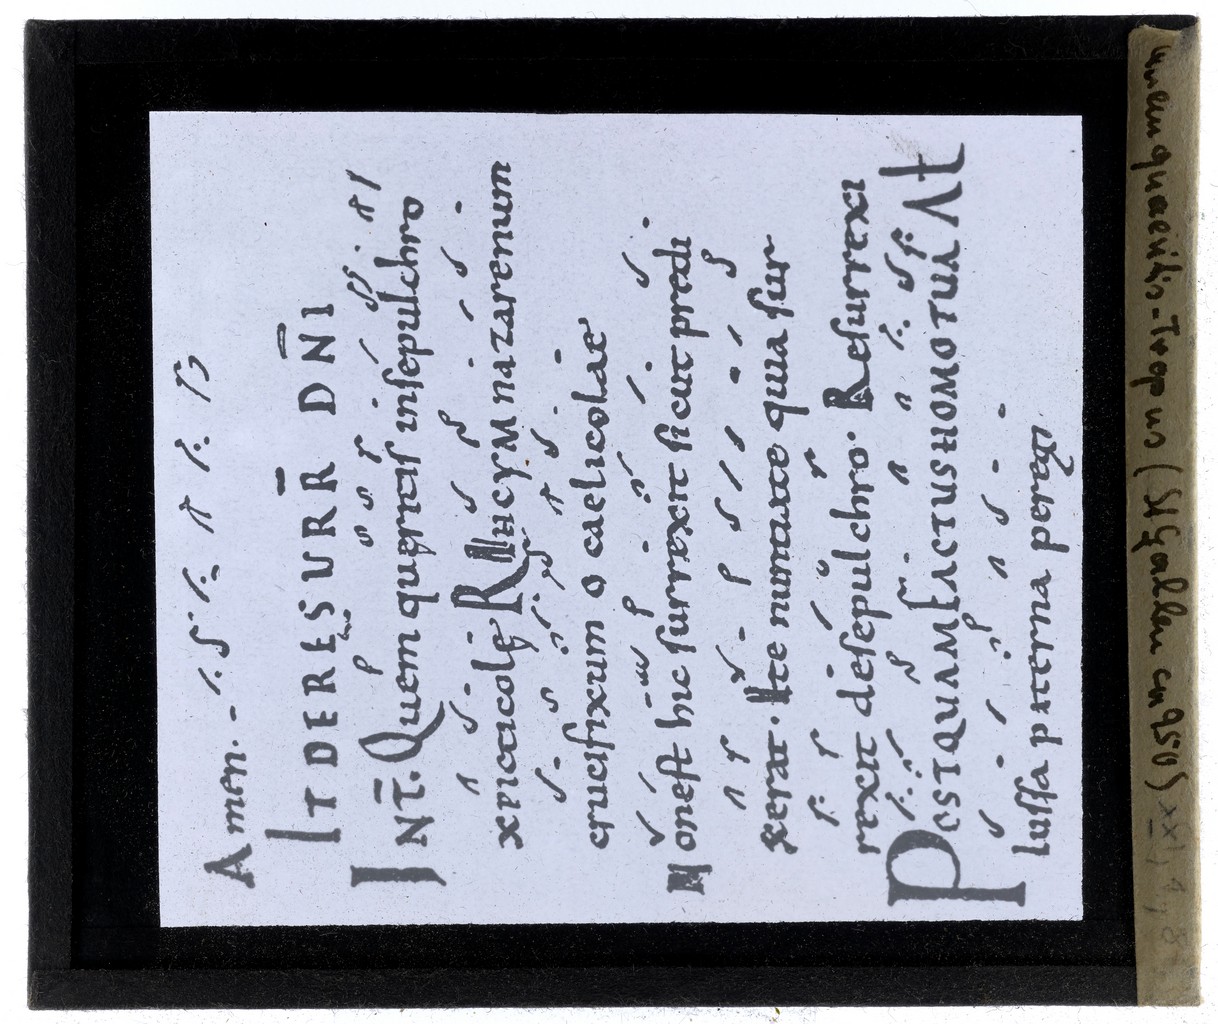 Amen.
IT DE RESURR̄ DN̄I
INT̄. Quem queritis in sepulchro
xpicticolę R̄ IHM nazarenum
crucifixum o caelicolae
Non est hic surrexit sicut predi
xerat. Ite nuntiate quia sur
rexit de sepulchro. Resurrexi
POSTQUAM FACTUS HOMO TUA Vt
iussa paterna peregi
quem quaeritis-Tropus (St Gallen cm 950)